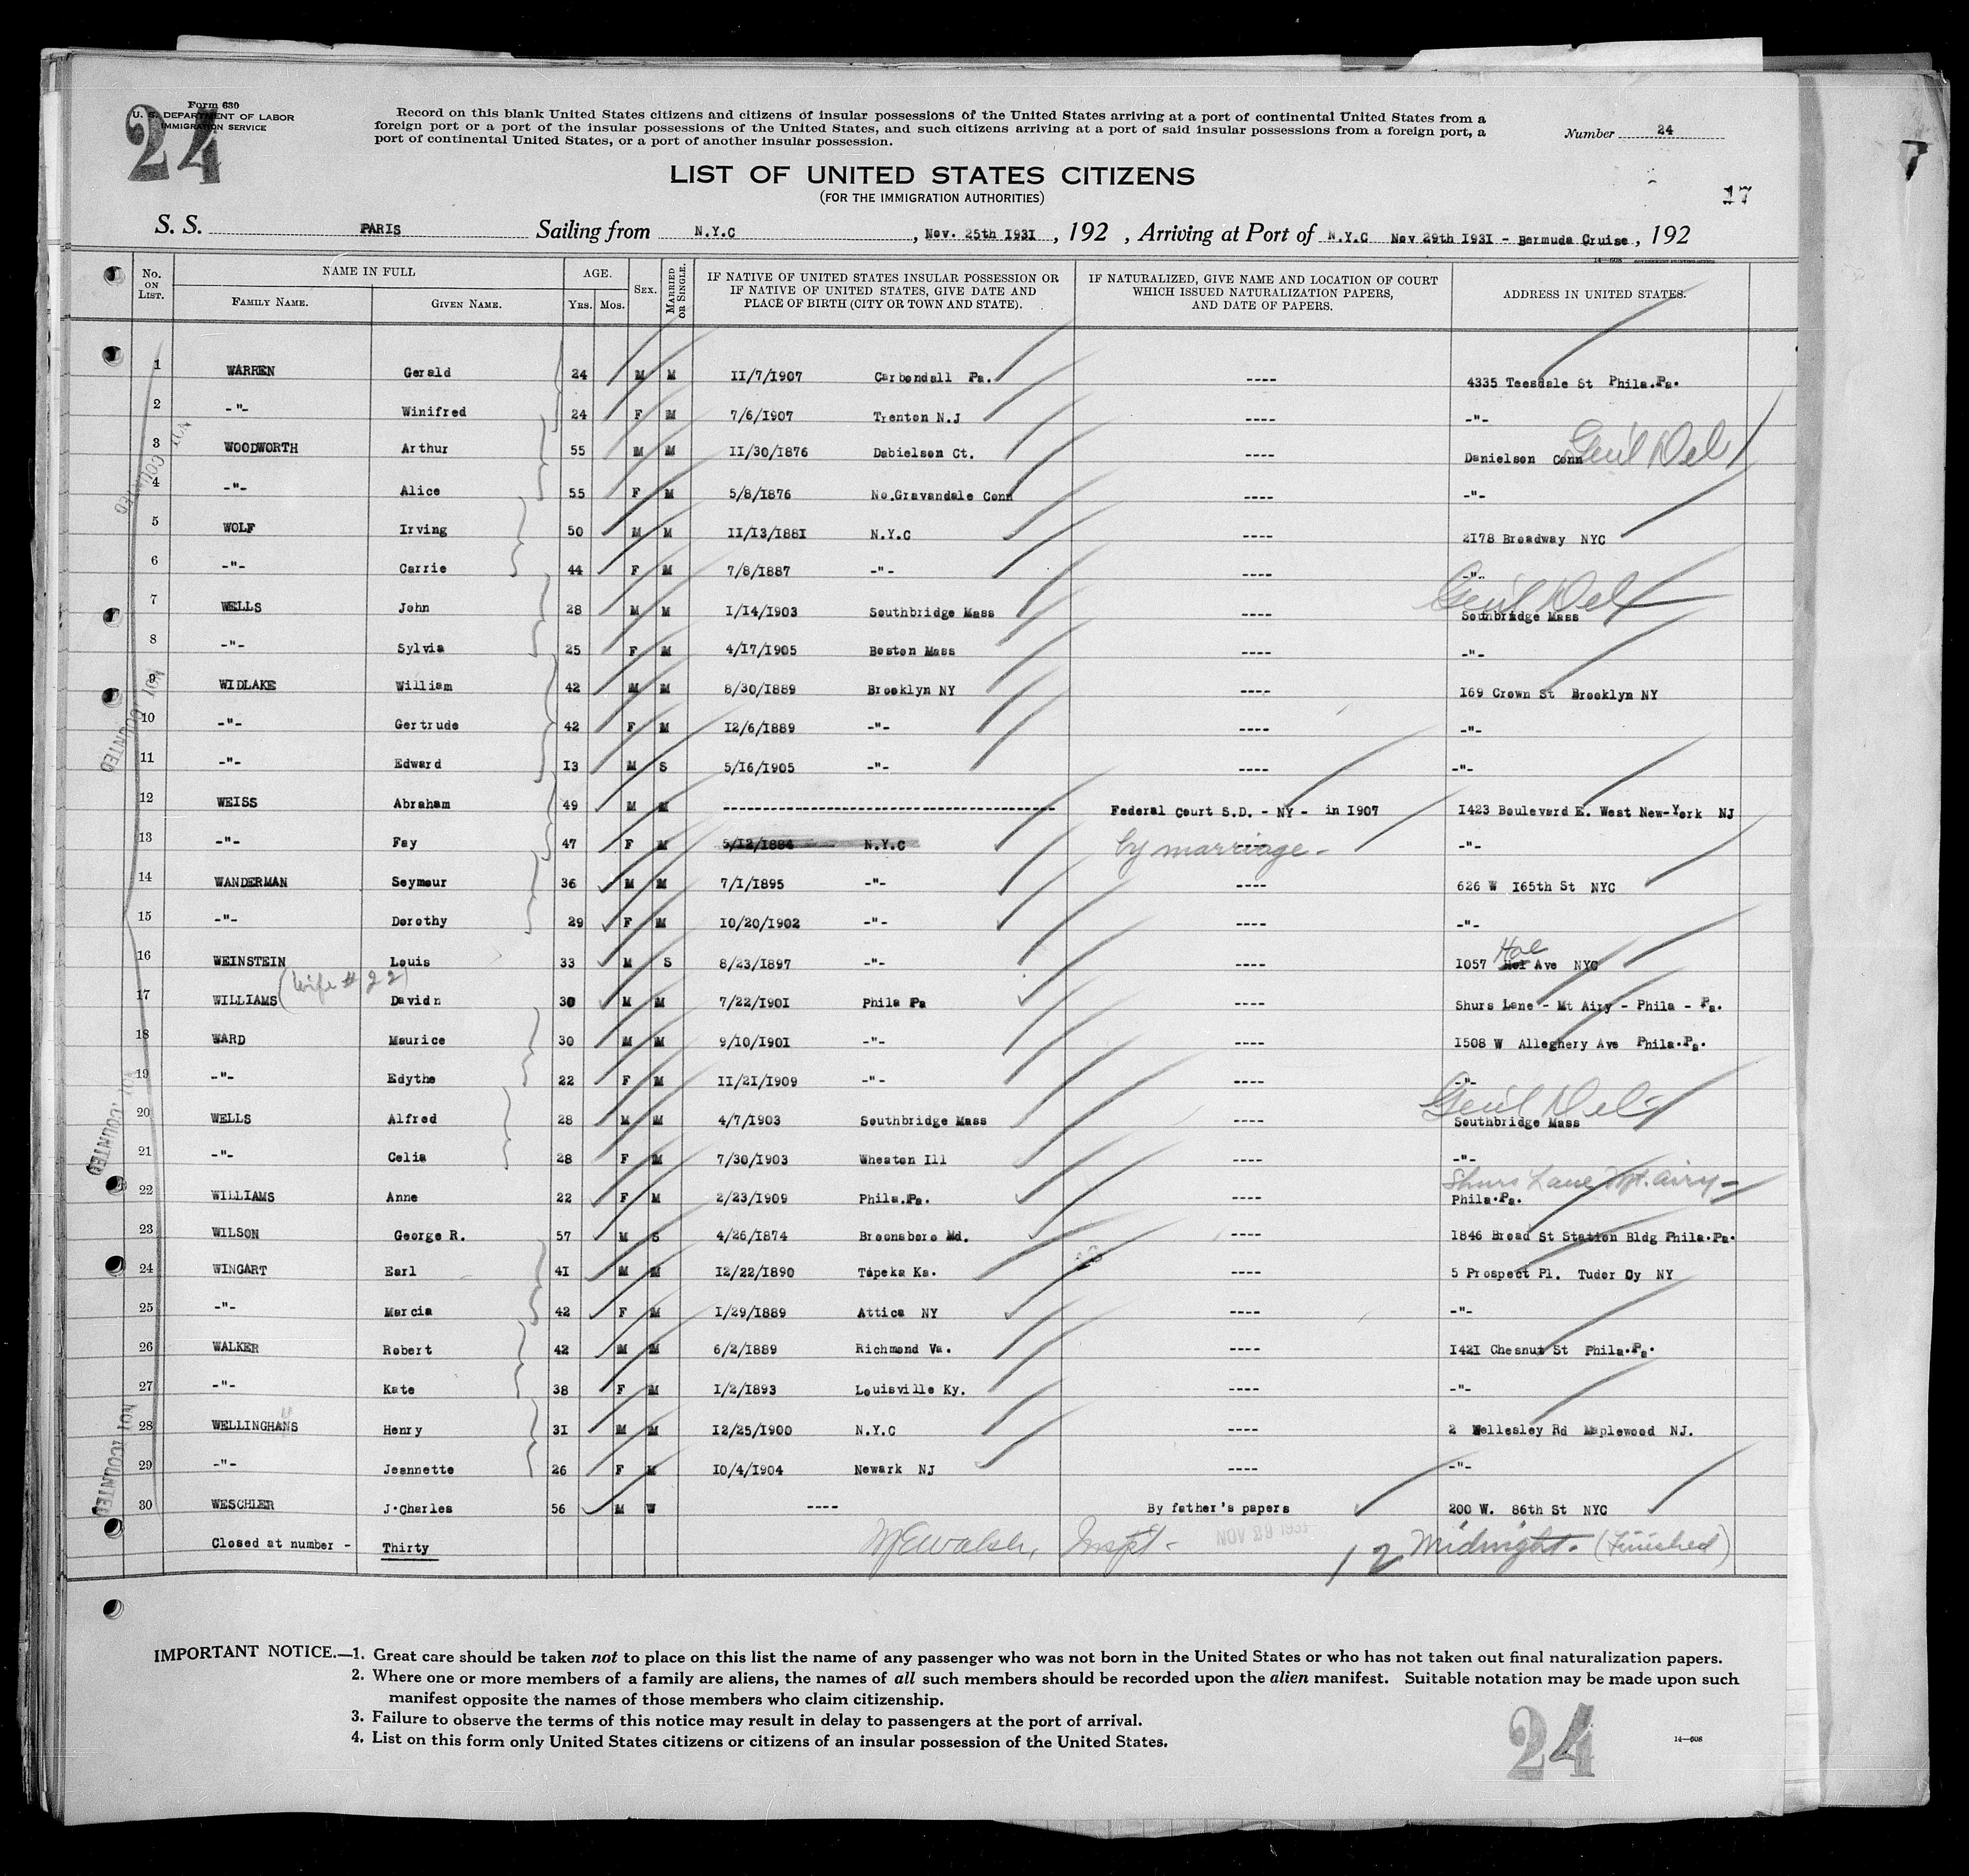 Form 630
U. S. DEPARTMENT OF LABOR
IMMIGRATION SERVICE
24
Record on this blank United States citizens and citizens of insular possessions of the United States arriving at a port of continental United States from a
foreign port or a port of the insular possessions of the United States, and such citizens arriving at a port of said insular possessions from a foreign port, a
port of continental United States, or a port of another insular possession.
Number 24
LIST OF UNITED STATES CITIZENS
(FOR THE IMMIGRATION AUTHORITIES)
17
S. S. PARIS Sailing from N.Y.C , Nov. 25th 1931 , 192 , Arriving at Port of N.Y.C Nov 29th 1931 - Bermuda Cruise , 192
14—608 GOVERNMENT PRINTING OFFICE
No. ON LIST. NAME IN FULL FAMILY NAME. GIVEN NAME. AGE. YRS. MOS. SEX. MARRIED OR SINGLE. IF NATIVE OF UNITED STATES INSULAR POSSESSION OR IF NATIVE OF UNITED STATES, GIVE DATE AND PLACE OF BIRTH (CITY OR TOWN AND STATE). IF NATURALIZED, GIVE NAME AND LOCATION OF COURT WHICH ISSUED NATURALIZATION PAPERS, AND DATE OF PAPERS. ADDRESS IN UNITED STATES.
1 WARREN Gerald 24 M M 11/7/1907 Carbondall Pa. ---- 4335 Teesdale St Phila.Pa.
2 -"- Winifred 24 F M 7/6/1907 Trenton N.J ---- -"-
3 WOODWORTH Arthur 55 M M 11/30/1876 Dabielson Ct. ---- Danielson Conn Gen'l Del
4 -"- Alice 55 F M 5/8/1876 No.Gravandale Conn ---- -"-
5 WOLF Irving 50 M M 11/13/1881 N.Y.C ---- 2178 Broadway NYC
6 -"- Carrie 44 F M 7/8/1887 -"- ---- -"-
7 WELLS John 28 M M 1/14/1903 Southbridge Mass ---- Gen'l Del Southbridge Mass
8 -"- Sylvia 25 F M 4/17/1905 Boston Mass ---- -"-
9 WIDLAKE William 42 M M 8/30/1889 Brooklyn NY ---- 169 Crown St Brooklyn NY
10 -"- Gertrude 42 F M 12/6/1889 -"- ---- -"-
11 -"- Edward 13 M S 5/16/1905 -"- ---- -"-
12 WEISS Abraham 49 M M ---- Federal Court S.D. - NY - in 1907 1423 Boulevard E. West New-York NJ
13 -"- Fay 47 F M 5/12/1884 N.Y.C by marriage - ---- -"-
14 WANDERMAN Seymour 36 M M 7/1/1895 -"- ---- 626 W 165th St NYC
15 -"- Dorothy 29 F M 10/20/1902 -"- ---- -"-
16 WEINSTEIN Louis 33 M S 8/23/1897 -"- ---- 1057 Hoe Ave NYC
17 WILLIAMS (Wife # 22) Davidn 30 M M 7/22/1901 Phila Pa ---- Shurs Lane - Mt Airy - Phila - Pa.
18 WARD Maurice 30 M M 9/10/1901 -"- ---- 1508 W Alleghery Ave Phila.Pa.
19 -"- Edythe 22 F M 11/21/1909 -"- ---- -"-
20 WELLS Alfred 28 M M 4/7/1903 Southbridge Mass ---- Gen'l Del Southbridge Mass
21 -"- Celia 28 F M 7/30/1903 Wheaton Ill ---- -"-
22 WILLIAMS Anne 22 F M 2/23/1909 Phila.Pa. ---- Shurs Lane Mt. Airy - Phila.Pa.
23 WILSON George R. 57 M S 4/26/1874 Broonsboro Md. ---- 1846 Broad St Station Bldg Phila.Pa.
24 WINGART Earl 41 M M 12/22/1890 Topeka Ka. ---- 5 Prospect Pl. Tudor Cy NY
25 -"- Marcia 42 F M 1/29/1889 Attica NY ---- -"-
26 WALKER Robert 42 M M 6/2/1889 Richmond Va. ---- 1421 Chesnut St Phila.Pa.
27 -"- Kate 38 F M 1/2/1893 Louisville Ky. ---- -"-
28 WELLINGHANS Henry 31 M M 12/25/1900 N.Y.C ---- 2 Wellesley Rd Maplewood NJ.
29 -"- Jeannette 26 F M 10/4/1904 Newark NJ ---- -"-
30 WESCHLER J.Charles 56 M W ---- By father's papers 200 W. 86th St NYC
Closed at number - Thirty Walsh, Inspt - NOV 29 1931 12 Midnight. (Finished)
NOT COUNTED
NOT COUNTED
NOT COUNTED
NOT COUNTED
IMPORTANT NOTICE.—1. Great care should be taken not to place on this list the name of any passenger who was not born in the United States or who has not taken out final naturalization papers.
2. Where one or more members of a family are aliens, the names of all such members should be recorded upon the alien manifest. Suitable notation may be made upon such
manifest opposite the names of those members who claim citizenship.
3. Failure to observe the terms of this notice may result in delay to passengers at the port of arrival.
4. List on this form only United States citizens or citizens of an insular possession of the United States.
24
14—608